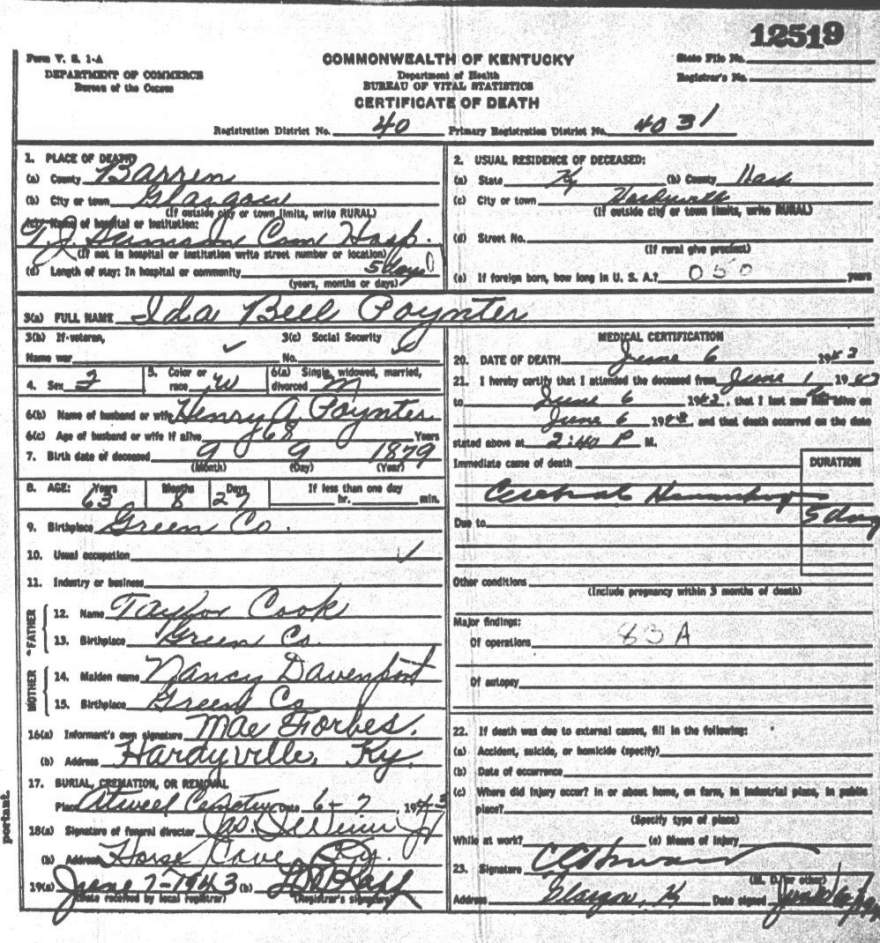 12519
Form V. S. 1-A
DEPARTMENT OF COMMERCE
Bureau of the Census
COMMONWEALTH OF KENTUCKY
Department of Health
BUREAU OF VITAL STATISTICS
CERTIFICATE OF DEATH
State File No.
Registrar's No.
Registration District No. 40 Primary Registration District No. 4031
1. PLACE OF DEATH:
(a) County Barren
(b) City or town Glasgow
(If outside city or town limits, write RURAL)
(c) Name of hospital or institution:
T. J. Com Hosp.
(If not in hospital or institution write street number or location)
(d) Length of stay: In hospital or community 5 days
(years, months or days)
2. USUAL RESIDENCE OF DECEASED:
(a) State Ky (b) County Hart
(c) City or town
(If outside city or town limits, write RURAL)
(d) Street No.
(If rural give precinct)
(e) If foreign born, how long in U. S. A.? 050 years
3(a) FULL NAME Ida Bell Poynter
3(b) If veteran,
Name war ✓
3(c) Social Security
No.
4. Sex F
5. Color or
race W
6(a) Single, widowed, married,
divorced M
6(b) Name of husband or wife Henry A. Poynter
6(c) Age of husband or wife if alive 68 Years
7. Birth date of deceased 9 9 1879
(Month) (Day) (Year)
8. AGE: Years Months Days If less than one day
63 8 27 hr. min.
9. Birthplace Green Co.
10. Usual occupation ✓
11. Industry or business
FATHER
12. Name Taylor Cook
13. Birthplace Green Co.
MOTHER
14. Maiden name Nancy Davenport
15. Birthplace Green Co
16(a) Informant's own signature Mae Forbes.
(b) Address Hardyville, Ky.
17. BURIAL, CREMATION, OR REMOVAL
Place Cemetry Date 6-7 1943
18(a) Signature of funeral director
(b) Address Horse Cave, Ky.
19(a) June 7-1943 (b)
(Date received by local registrar) (Registrar's signature)
MEDICAL CERTIFICATION
20. DATE OF DEATH June 6 1943
21. I hereby certify that I attended the deceased from June 1 1943
to June 6 1943, that I last saw alive on
June 6 1943, and that death occurred on the date
stated above at 2:40 P M.
Immediate cause of death DURATION
Cerebral Hemorrhage
Due to 5 days
Other conditions
(Include pregnancy within 3 months of death)
Major findings:
Of operations 83A
Of autopsy
22. If death was due to external causes, fill in the following:
(a) Accident, suicide, or homicide (specify)
(b) Date of occurrence
(c) Where did injury occur? In or about home, on farm, in industrial place, in public
place?
(Specify type of place)
While at work? (e) Means of injury
23. Signature
(M. D. or other)
Address Glasgow, Ky Date signed
portant.